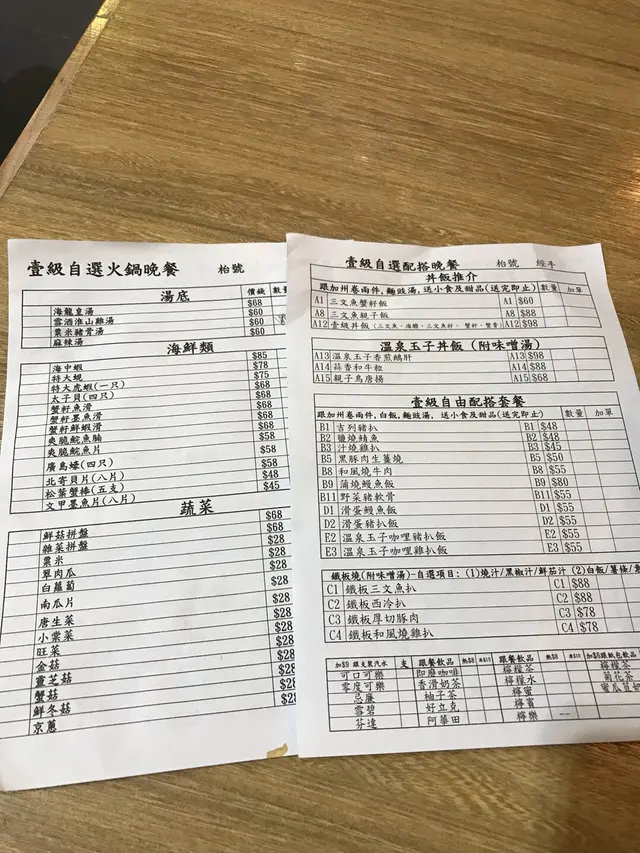 壹級自選火鍋晚餐 枱號
湯底 價錢 數量
海龍皇湯 $68
雲酒淮山雞湯 $60
粟米豬骨湯 $60
麻辣湯 $68
海鮮類
海中蝦 $85
特大蜆 $78
特大虎蝦(一只) $75
太子貝(四只) $68
蟹籽魚滑 $68
蟹籽墨魚滑 $68
蟹籽鮮蝦滑 $68
爽脆鯇魚腩 $68
爽脆鯇魚片 $58
廣島蠔(四只) $58
北寄貝片(八片) $58
松葉蟹棒(五支) $48
文甲墨魚片(八片) $45
蔬菜
鮮菇拼盤 $68
雜菜拼盤 $68
粟米 $28
翠肉瓜 $28
白蘿蔔 $28
南瓜片 $28
唐生菜 $28
小棠菜 $28
旺菜 $28
金菇 $28
靈芝菇 $28
蟹菇 $28
鮮冬菇 $28
京蔥
壹級自選配搭晚餐 枱號 經手
丼飯推介
跟加州卷兩件,麵豉湯,送小食及甜品(送完即止) 數量 加單
A1 三文魚蟹籽飯 A1 $60
A8 三文魚親子飯 A8 $88
A12 壹級丼飯 A12 $98
溫泉玉子丼飯(附味噌湯)
A13 溫泉玉子香煎鵝肝 A13 $98
A14 蒜香和牛粒 A14 $88
A15 親子鳥唐揚 A15 $68
壹級自由配搭套餐
跟加州卷兩件,白飯,麵豉湯,送小食及甜品(送完即止) 數量 加單
B1 吉列豬扒 B1 $48
B2 鹽燒鯖魚 B2 $48
B3 汁燒雞扒 B3 $45
B5 黑豚肉生薑燒 B5 $50
B8 和風燒牛肉 B8 $55
B9 蒲燒鰻魚飯 B9 $80
B11 野菜豬軟骨 B11 $55
D1 滑蛋鰻魚飯 D1 $55
D2 滑蛋豬扒飯 D2 $55
E2 溫泉玉子咖哩豬扒飯 E2 $55
E3 溫泉玉子咖哩雞扒飯 E3 $55
鐵板燒(附味噌湯)-自選項目: (1)燒汁/黑椒汁/鮮茄汁 (2)白飯/薯條/
C1 鐵板三文魚扒 C1 $88
C2 鐵板西冷扒 C2 $88
C3 鐵板厚切豚肉 C3 $78
C4 鐵板和風燒雞扒 C4 $78
加$9 跟支裝汽水 支 跟餐飲品 熱$8 凍$10 跟餐飲品 熱$8 凍$10
可口可樂 即磨咖啡 檸檬茶 檸檬茶
零度可樂 香滑奶茶 檸檬水 菊花茶
忌廉 柚子茶 檸蜜
雪碧 好立克 檸賓
芬達 阿華田 檸樂